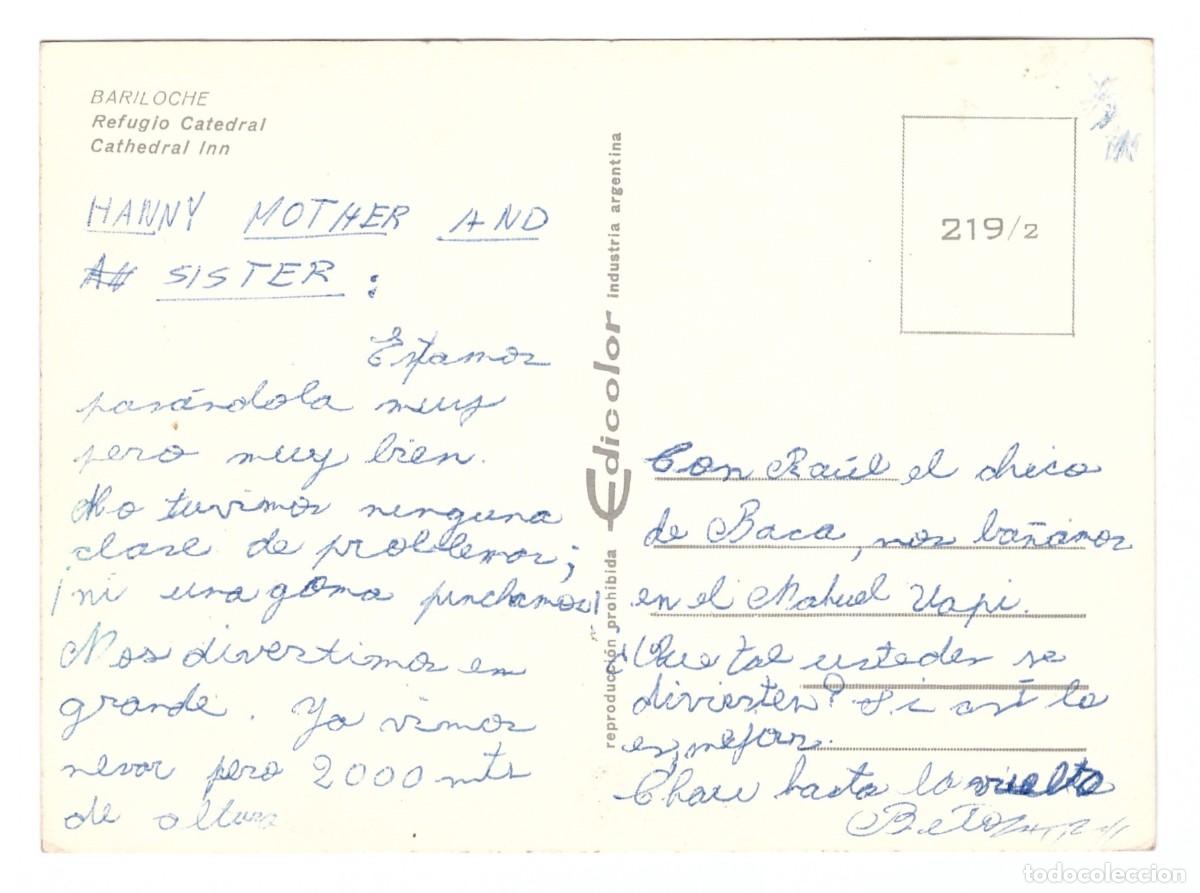 BARILOCHE
Refugio Catedral
Cathedral Inn
HANNY MOTHER AND
SISTER :
Estamos
pasándola muy
pero muy bien.
No tuvimos ninguna
clase de problemas;
¡ni una goma pinchamos!
Nos divertimos en
grande. Ya vimos
nevar pero 2000 mts
de altura
reproducción prohibida Edicolor industria argentina
219/2
Con Raúl el chico
de Baca, nos bañamos
en el Nahuel Uapi.
¿Que tal ustedes se
divierten? Si así lo
es, mejor.
Chau hasta la vuelta
Beto
todocoleccion